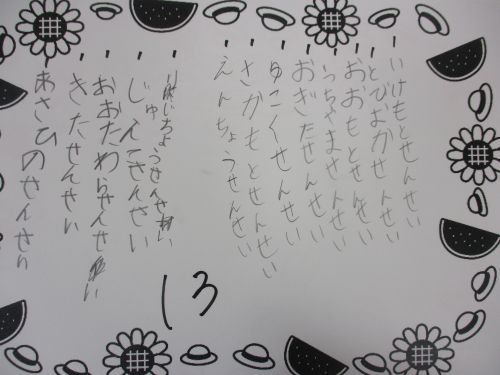 いけもとせんせい
とびおかせんせい
おおもとせんせい
うちやませんせい
おぎたせんせい
ゆこくせんせい
さかもとせんせい
えんちょうせんせい
じゅんこせんせい
おおたわらせんせい
きたせんせい
あさひのせんせい
13